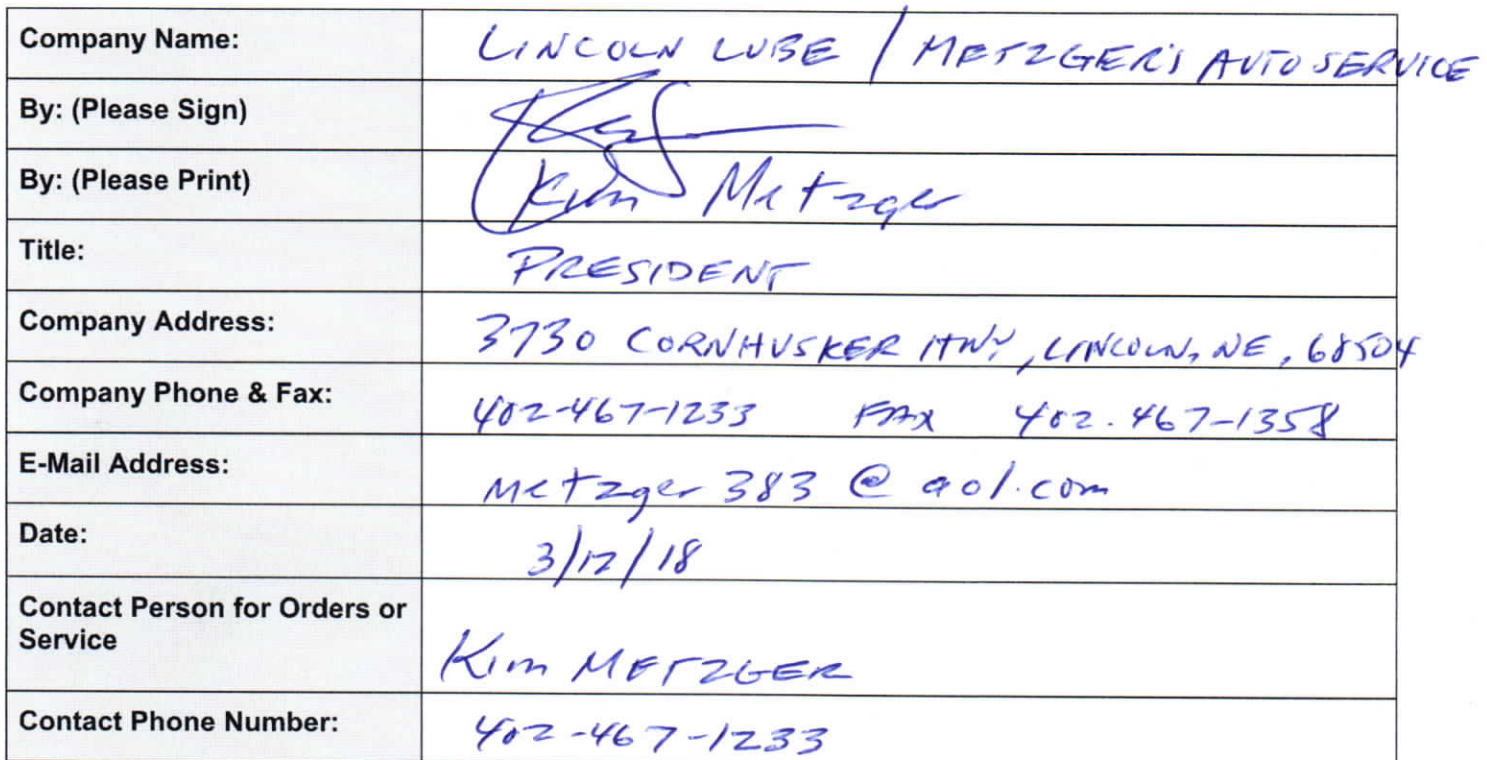 Company Name: LINCOLN LUBE / METZGER'S AUTO SERVICE
By: (Please Sign)
By: (Please Print) Kim Metzger
Title: PRESIDENT
Company Address: 3730 CORNHUSKER HWY, LINCOLN, NE, 68504
Company Phone & Fax: 402-467-1233 FAX 402.467-1358
E-Mail Address: metzger383@aol.com
Date: 3/12/18
Contact Person for Orders or
Service Kim METZGER
Contact Phone Number: 402-467-1233